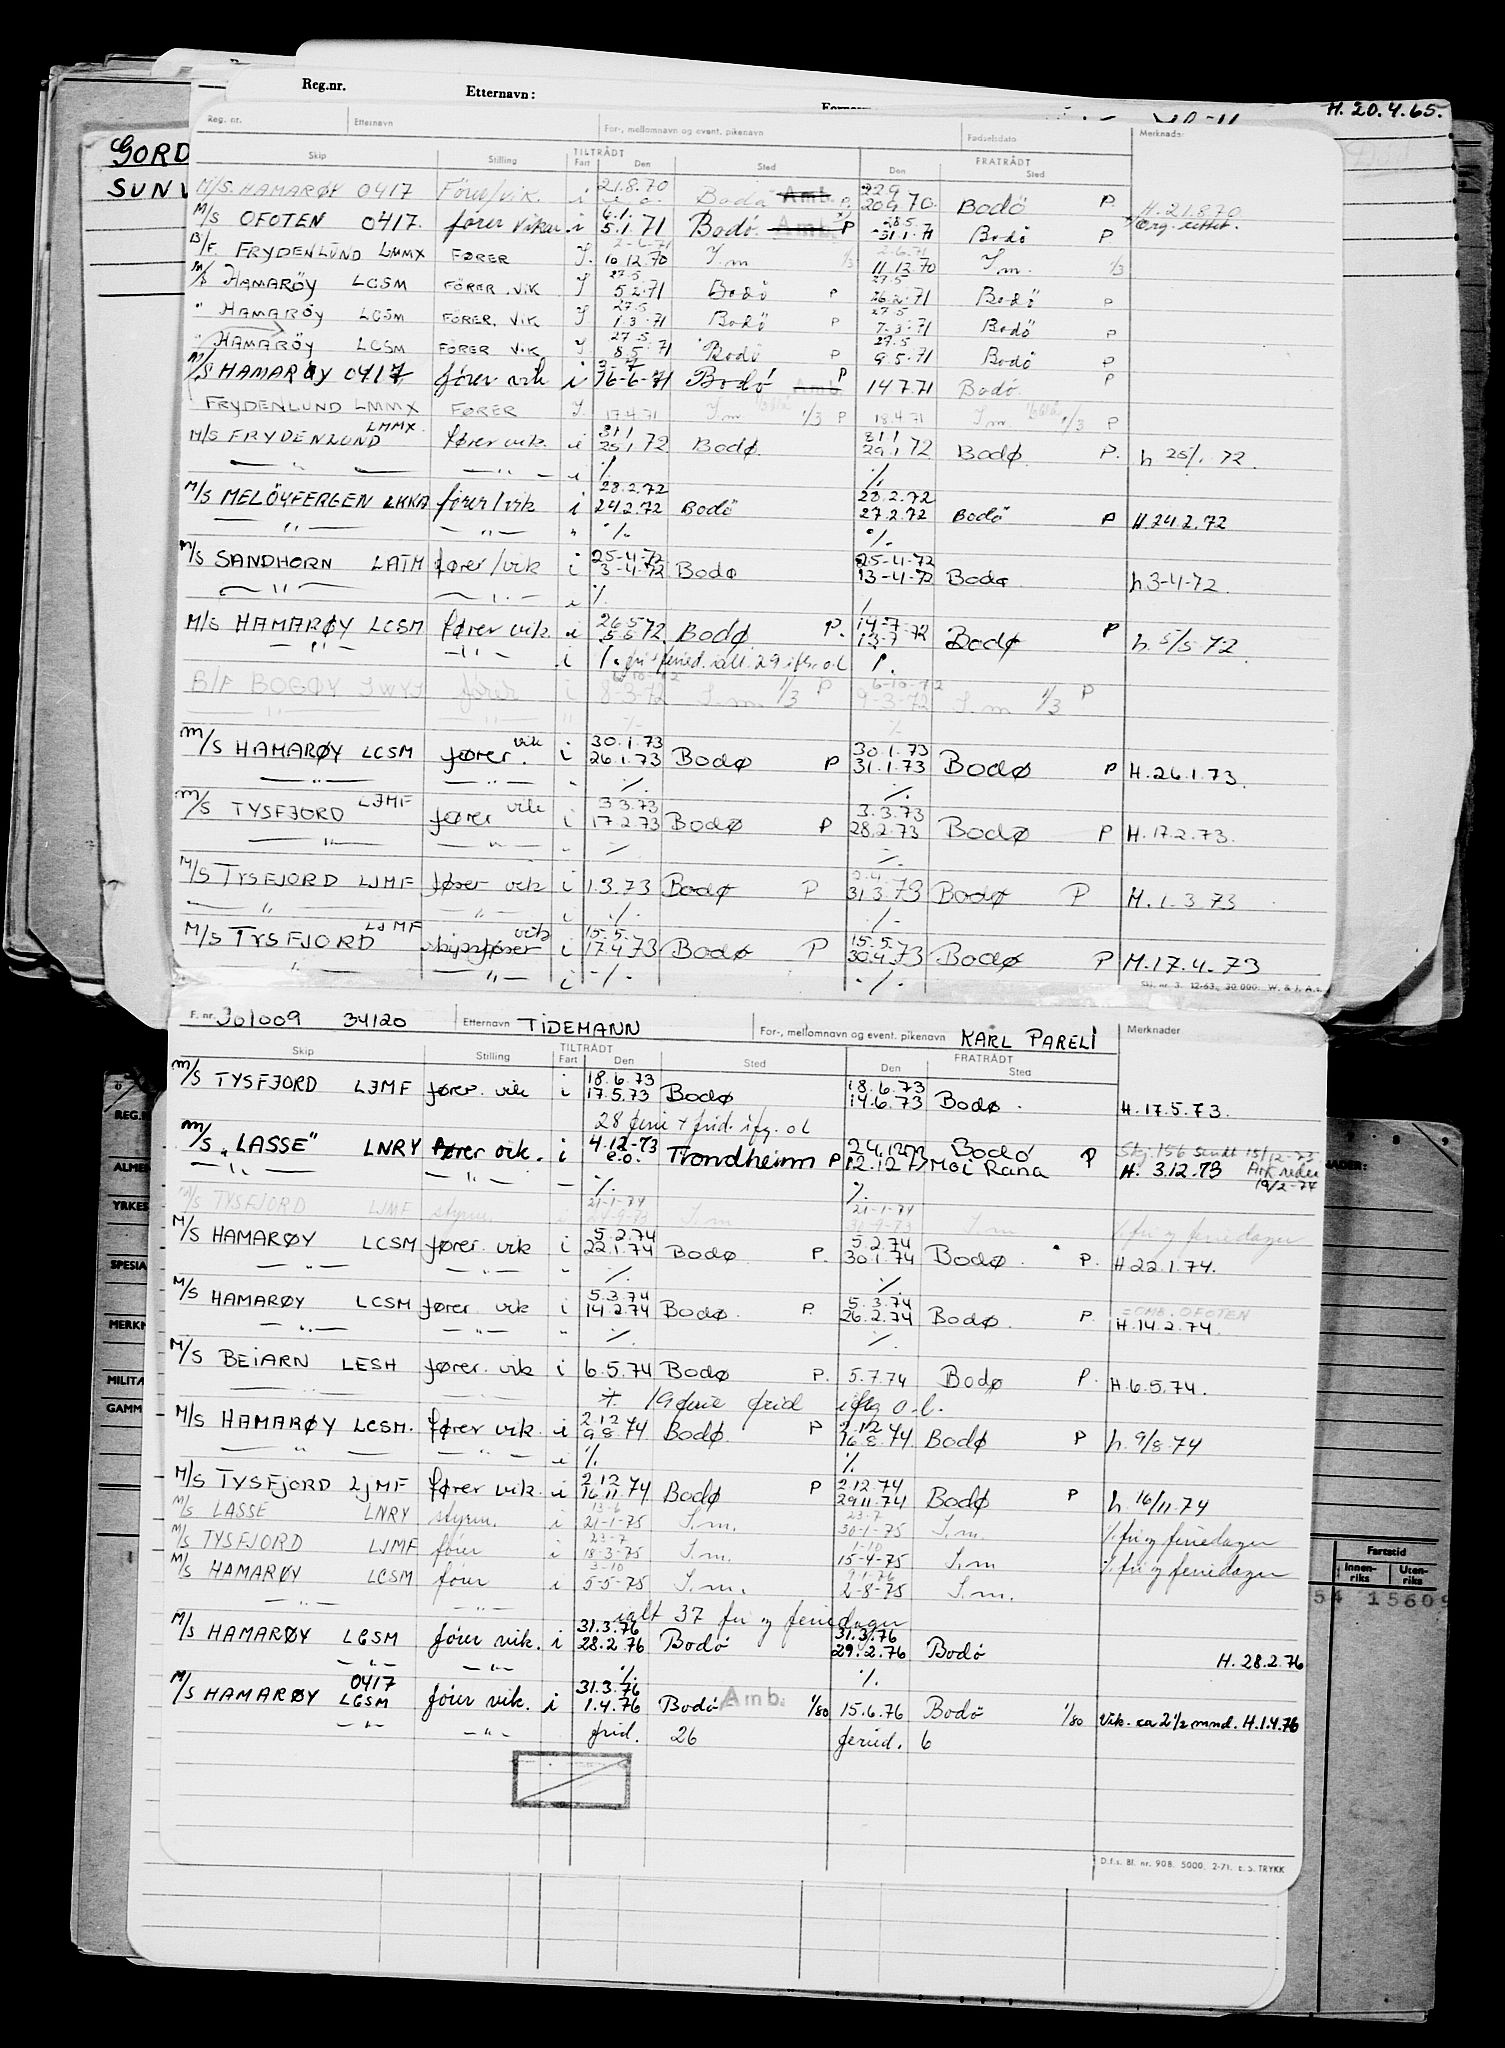 Reg.nr. Etternavn:
H. 20.4.65.
GORD
SUNV
Reg. nr. Etternavn For-, mellomnavn og event. pikenavn Fødselsdato Merknader
TILTRÅDT FRATRÅDT
Skip Stilling Fart Den Sted Den Sted
M/S. HAMARØY 0417 Fører/vik. i 21.8.70 Bodø Amb. P. 22.9 20.9.70. Bodö P. H. 21.8.70
M/S OFOTEN 0417. fører vikar i 6.1. 5.1.71 Bodø. Amb. P 28.5. 31.1.71 Bodö P
B/F. FRYDENLUND LMMX FØRER I. 2-6-71 10.12.70 I.m 1/3 11.12.70 I.m. 1/3
M/S HAMARÖY LCSM FÖRER. VIK I 27.5 5.2.71 Bodö P 27.5 26.2.71 Bodö P
" HAMARÖY LCSM FÖRER. VIK I 27.5 1.3.71 Bodö P 27.5 7.3.71 Bodö P
" HAMARÖY LCSM FØRER VIK I 27.5. 8.5.71 Bodö P 27.5 9.5.71 Bodö P
M/S HAMARØY 0417 fører vik i 16-6-71 Bodö Amb. P 14.7.71 Bodö P
FRYDENLUND LMMX FØRER I. 17.4.71 I.m 1/3 P 18.4.71 I.m 1/3 P
M/S FRYDENLUND LMMX. fører vik. i 31.1 25.1.72 Bodø. 31.1 29.1.72 Bodø. P. h 25/1.72.
— " — — " — i %. %.
M/S MELÖYFERGEN LKKA fører/vik i 28.2.72 24.2.72 Bodö 28.2.72 27.2.72 Bodö P H.24.2.72
— " — — " — " %. %.
M/S SANDHORN LATM fører/vik i 25-4-72 3-4-72 Bodø 25-4-72 13-4-72 Bodø h.3-4-72.
— " — — " — i %. %.
M/S HAMARØY LCSM fører vik. i 26.5 5.5 72. Bodø P. 14-7- 13-7-72 Bodø P h. 5/5-72.
— " — — " — i
B/F BOGØY fører i 6-10-72 8-3-72 I.m 1/3 P 6-10-72 9-3-72 I.m 1/3 P
— " — — " — " %.
M/S HAMARØY LCSM fører. vik i 30.1.73 26.1.73 Bodø P 30.1.73 31.1.73 Bodø P H.26.1.73.
— " — — " — - %. %.
M/S TYSFJORD LJMF fører vik i 3.3.73 17.2.73 Bodø P 3.3.73 28.2.73 Bodø P H.17.2.73.
— " — — " — - %. %.
M/S TYSFJORD LJMF fører vik i 1.3.73 Bodø P 31.3.73 Bodø P H. 1.3.73
— " — — " — i %. %.
M/S TYSFJORD LJMF skipsfører vik i 15.5. 17.4.73 Bodø P 15.5. 30.4.73 Bodø P H.17.4.73
— " — — " — i %. %.
12-63. 30.000. W. & J. A.s.
F. nr. 301009 34120 Etternavn TIDEMANN For-, mellomnavn og event. pikenavn KARL PARELI Merknader
TILTRÅDT FRATRÅDT
Skip Stilling Fart Den Sted Den Sted
M/S TYSFJORD LJMF fører. vik i 18.6.73 17.5.73 Bodø 18.6.73 14.6.73 Bodø. H.17.5.73.
28 ferie + frid. ifg. o.l
M/S "LASSE" LNRY fører vik. i 4.12-73 e.o. Trondheim P 12.12.73 Bodö Moi Rana P Skj.156 sendt 15/12-73 H. 3.12.73 19/2-74
— " — — " — - %. %.
M/S TYSFJORD LJMF styrm. 21-1-74 24-9-73 I.m 21-1-74 30-9-73 I.m %. fri og feriedager
M/S HAMARØY LCSM fører. vik i 5.2.74 22.1.74 Bodø P. 5.2.74 30.1.74 Bodø. P. H 22.1.74.
— " — — " — - %. %.
M/S HAMARØY LCSM fører. vik i 5.3.74 14.2.74 Bodø. P. 5.3.74 26.2.74 Bodø. P. = OMB. OFOTEN H.14.2.74.
— " — — " — " %. %.
M/S BEIARN LESH fører. vik i 6.5.74 Bodø P. 5.7.74 Bodø P. H.6.5.74.
19 ferie frid iflg o.l.
M/S HAMARØY LCSM. fører vik. i 2.12 9.8.74 Bodø. P 2.12 16.8.74 Bodø P h. 9/8.74
— " — — " — i %. %.
M/S TYSFJORD LJMF fører vik. i 2.12 16.11.74 Bodø P 2.12.74 29.11.74 Bodø P h. 16/11.74
M/S LASSE LNRY styrm. i 13-6 21-1-75 I.m. 23-7 30-1-75 I.m. %. fri og feriedager
M/S TYSFJORD LJMF fører i 23-7 18-3-75 I.m. 1-10 15-4-75 I.m %. fri og feriedager
M/S HAMARØY LCSM fører i 3-10 5-5-75 I.m. 9-1-76 2-8-75 I.m.
— " — — " — ialt 37 fri og feriedager
M/S HAMARØY LCSM fører vik. i 31.3.76 28.2.76 Bodö 31.3.76 29.2.76 Bodö H. 28.2.76
— " — — " — %. %.
M/S HAMARØY 0417 LCSM fører vik. i 31.3.76 1.4.76 Bodö Amb. 1/80 15.6.76 Bodö 1/80 Vik. ca 2½ mnd. H.1.4.76
— " — — " — frid. 26 feried. 6
D.f.s. Bl. nr. 908. 5000. 2-71. E.S. TRYKK
REG.
ALME
YRKES
SPESIA
MERKN
MILITA
GAMM
8 9
NADER:
Fartstid
Innen-riks Uten-riks
54 15609